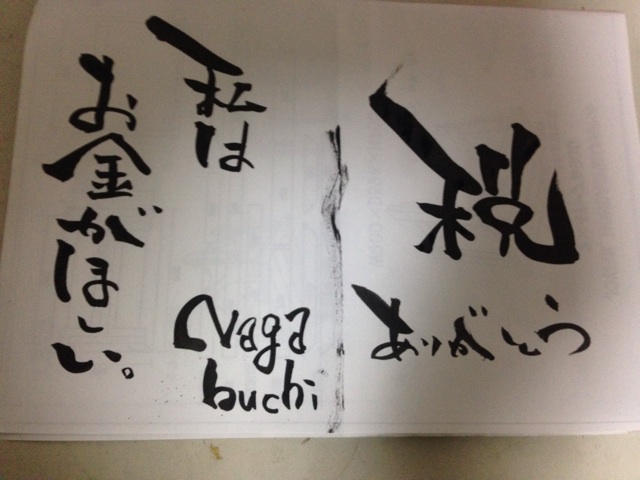 税
ありがとう
私は
お金がほしい。
Naga
buchi